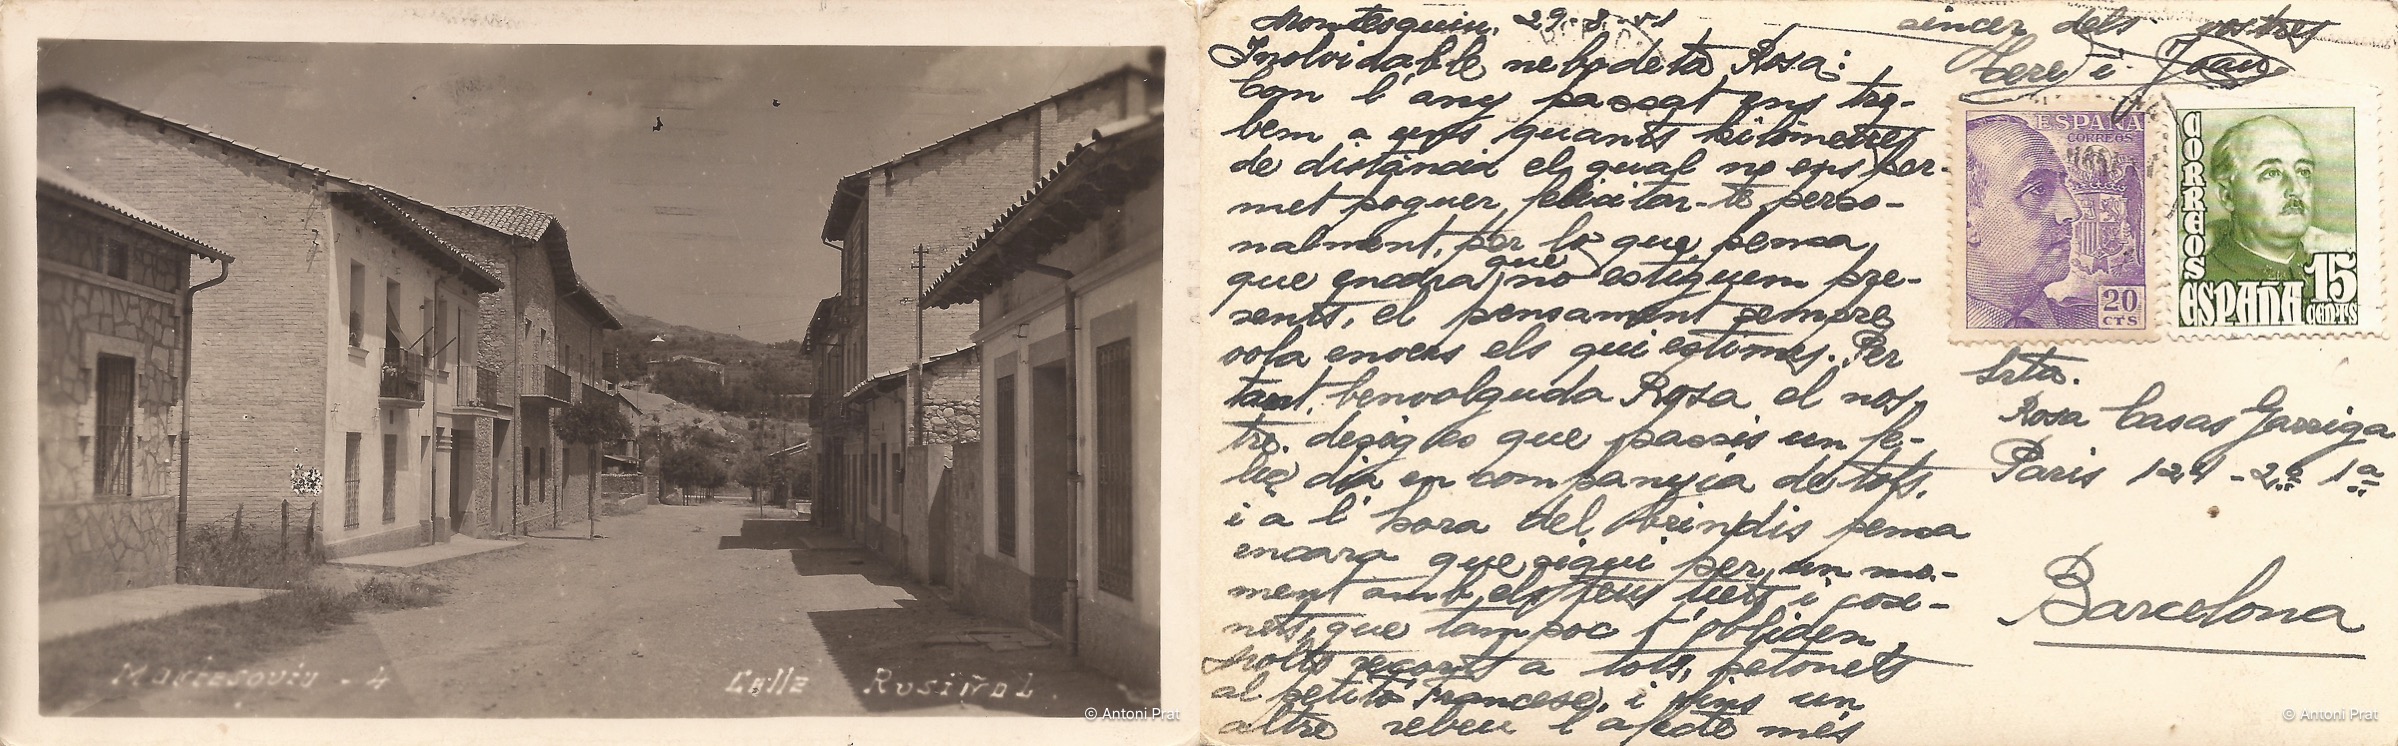 Montesquiu - 4
Calle Rusiñol.
© Antoni Prat
Montesquiu, 29-8-51
Inolvidable nebodeta Rosa:
Com l'any passat ens tro-
bem a uns quants kilòmetres
de distància el qual no ens per-
met poguer felicitar-te perso-
nalment, per lo que, pensa
que encara que no estiguem pre-
sents, el pensament sempre
vola envers els qui estimes. Per
tant, benvolguda Rosa el nos-
tre desig es que passis un fe-
liç dia en companyia de tots,
i a l'hora del brindis pensa
encara que sigui per un mo-
ment amb els teus tiets i cosi-
nets, que tampoc t'obliden
Molts recorts a tots, petonets
al petitó Francesc, i fins un
altre rebeu l'afecte més
sincer dels vostres
Tere i Joan
ESPAÑA
CORREOS
20
CTS
CORREOS
ESPAÑA
15
CENTS
Srta.
Rosa Casas Garriga
Paris 121 - 2º 1ª
Barcelona
© Antoni Prat